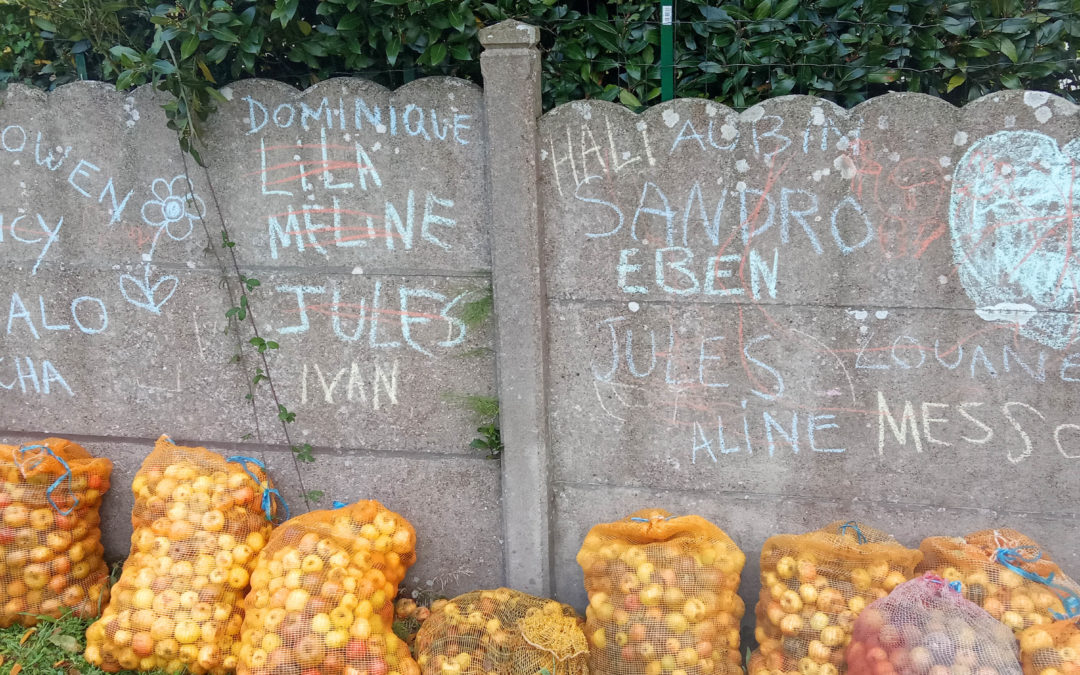 OWEN
ICY
ALO
CHA
DOMINIQUE
LILA
MELINE
JULES
IVAN
HALI AUBIN
SANDRO
EBEN
JULES LOUANE
ALINE MESSO